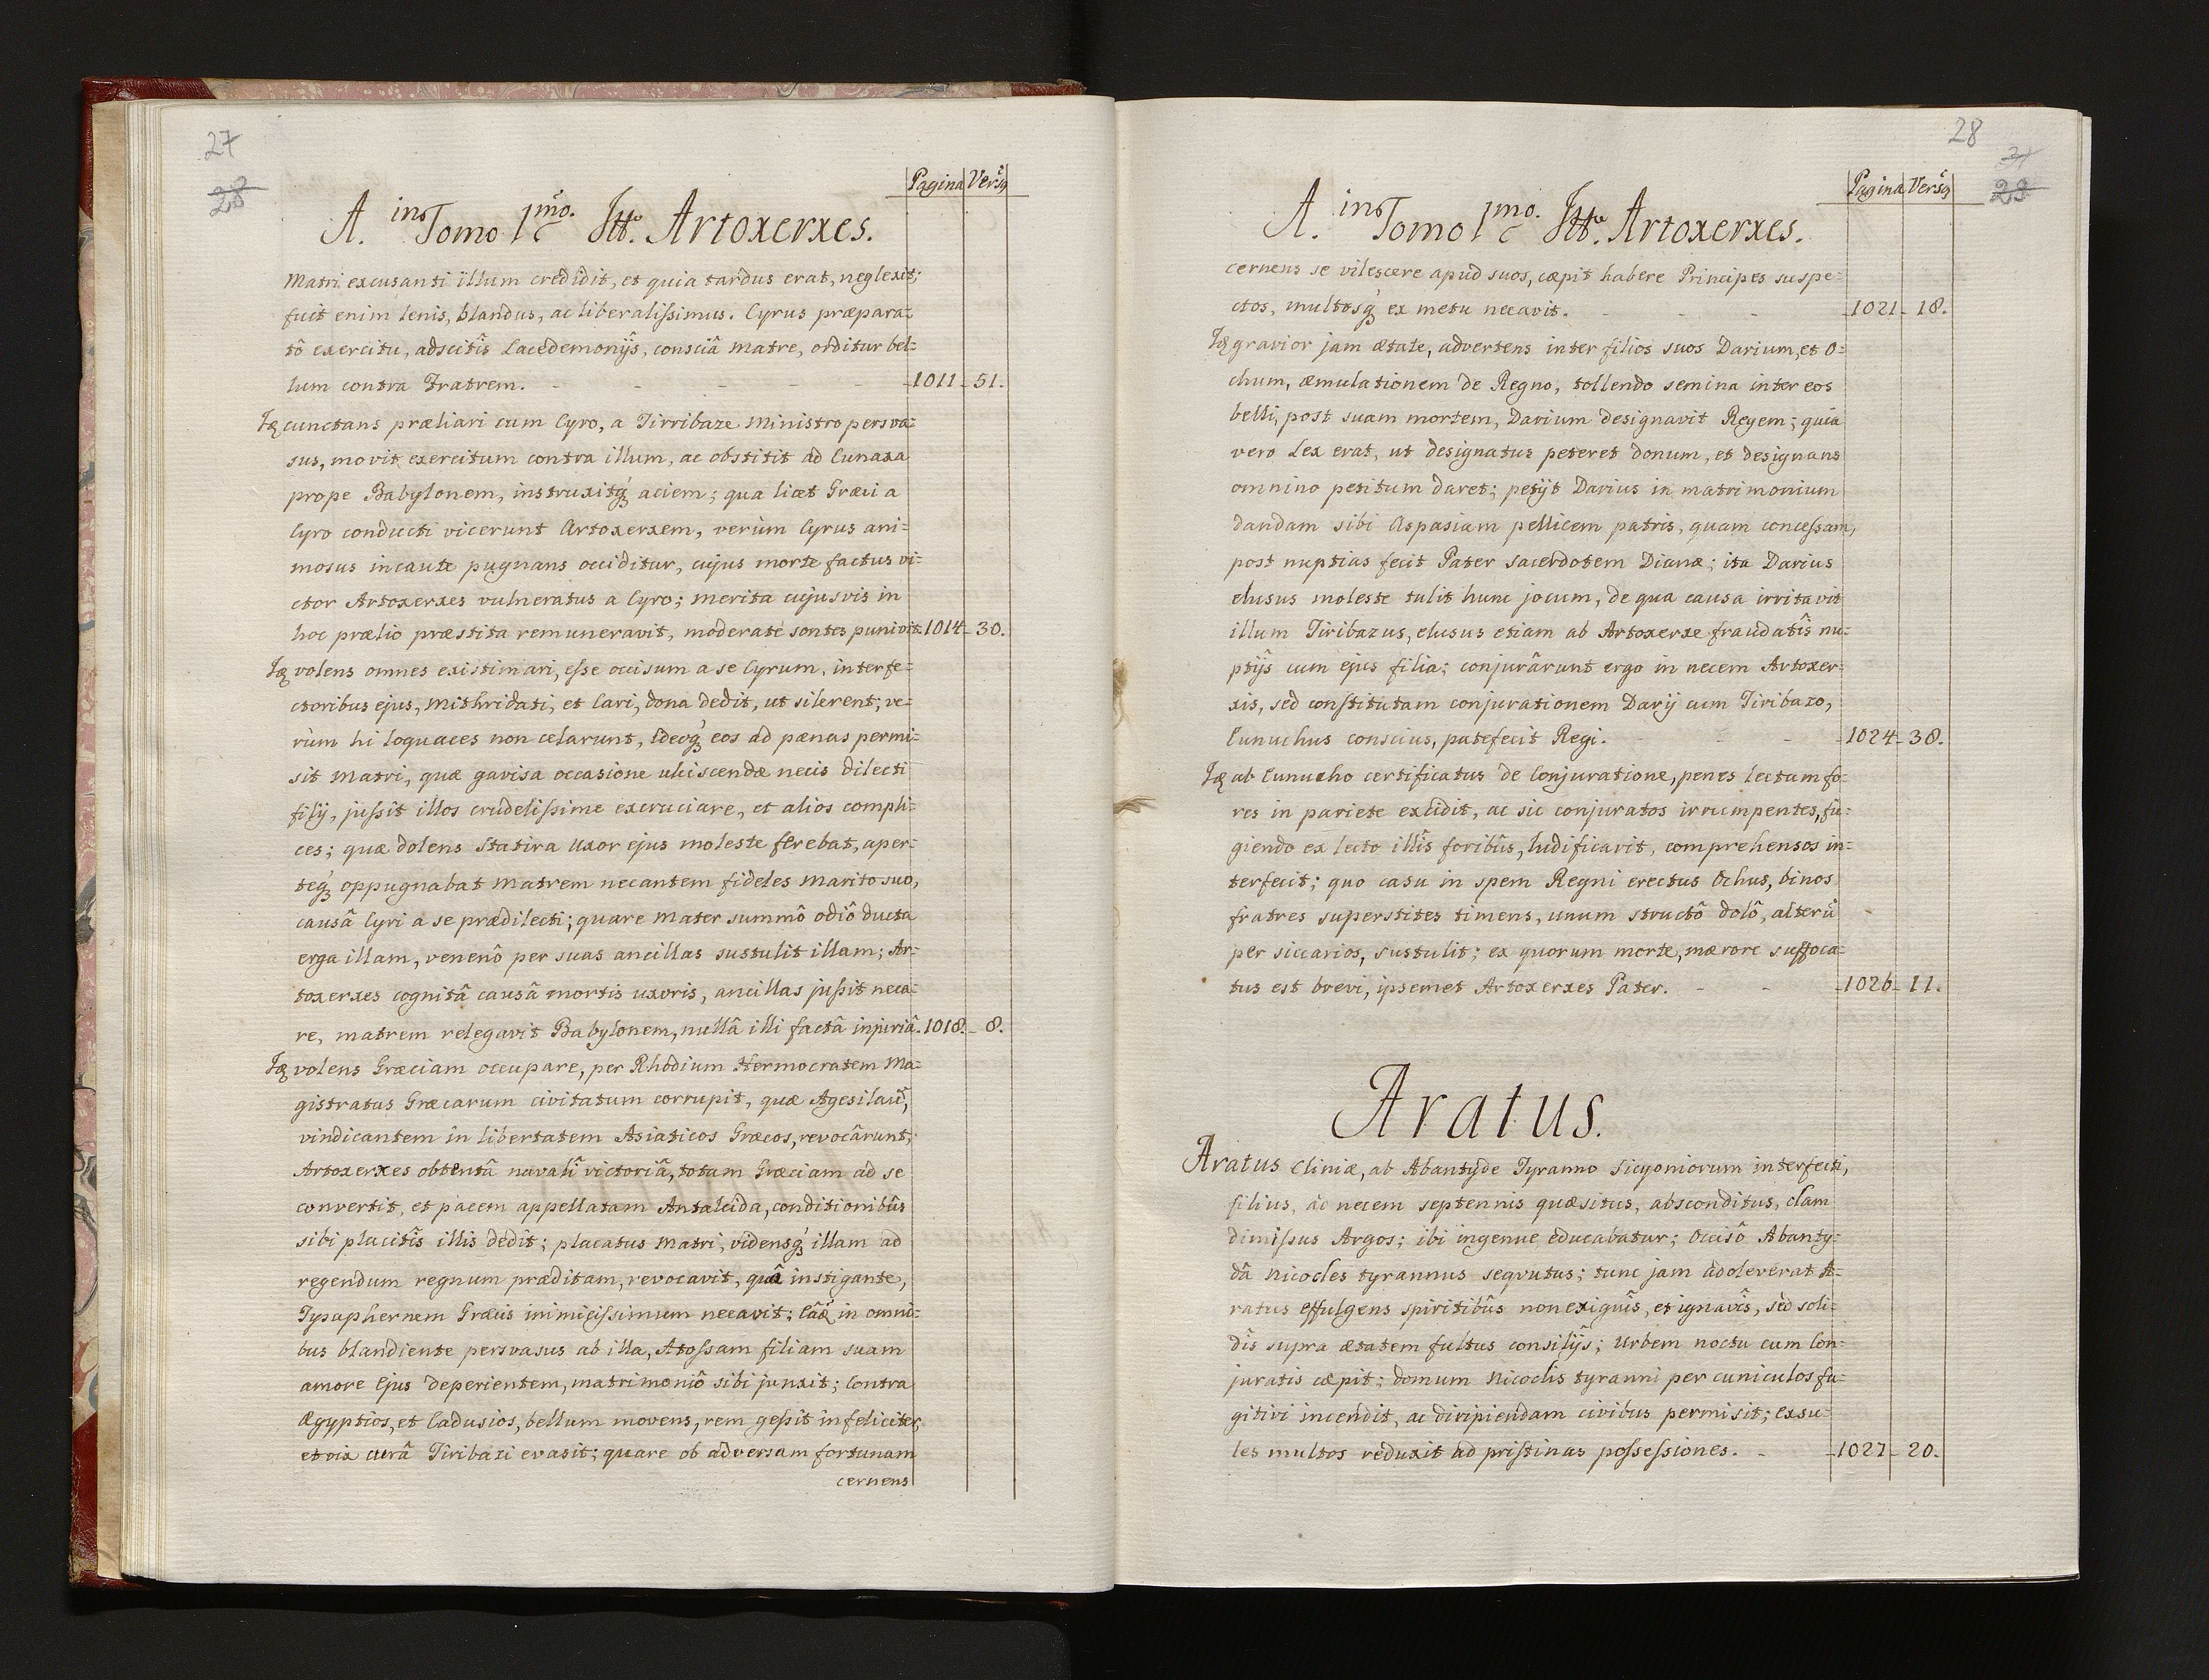 27
28
Pagina Versq
A. in Tomo 1mo. Itt. Artoxerxes.
Matri excusanti illum credidit, et quia tardus erat, neglexit;
fuit enim lenis, blandus, ac liberalissimus. Cyrus præpara=
tô exercitu, adscitîs Lacedemonijs, consciâ Matre, orditur bel=
lum contra Fratrem. - - - - - 1011 - 51.
Itq cunctans præliari cum Cyro, a Tirribaze Ministro persva=
sus, movit exercitum contra illum, ac obstitit ad Cunaxa
prope Babylonem, instruxitq́ aciem; qua licet Græci a
Cyro conducti vicerunt Artoxerxem, verùm Cyrus ani=
mosus incaute pugnans occiditur, cujus morte factus vi=
ctor Artoxerxes vulneratus a Cyro; merita cujusvis in
hoc prælio præstita remuneravit, moderatè sontes punivit. 1014 - 30.
Itq volens omnes existimari, esse occisum a se Cyrum, interfe=
ctoribus ejus, Mithridati, et Cari, dona dedit, ut silerent; ve=
rùm hi loquaces non celarunt, Ideoq́ eos ad pænas permi=
sit Matri, quæ gavisa occasione ulciscendæ necis dilecti
filij, jussit illos crudelissime excruciare, et alios compli=
ces; quæ dolens Statira Uxor ejus moleste ferebat, aper=
teq́ oppugnabat Matrem necantem fideles Marito suo,
causâ Cyri a se prædilecti; quare Mater summô odiô ducta
erga illam, venenô per suas ancillas sustulit illam; Ar=
toxerxes cognitâ causâ mortis uxoris, ancillas jussit neca=
re, matrem relegavit Babylonem, nullâ illi factâ injuriâ. 1018. - 8.
Itq volens Græciam occupare, per Rhodium Hermocratem Ma=
gistratus Græcarum civitatum corrupit, quæ Agesilaũ,
vindicantem in libertatem Asiaticos Græcos, revocârunt;
Artoxerxes obtentâ navalî victoriâ, totam Græciam ad se
convertit, et pacem appellatam Antalcida, conditionibûs
sibi placitîs illis dedit; placatus Matri, vidensq́ illam ad
regendum regnum præditam, revocavit, quâ instigante,
Tysaphernem Græcis inimicissimum necavit; Eâdẽ in omni=
bus blandiente persvasus ab illa, Atossam filiam suam
amore Ejus deperientem, matrimoniô sibi junxit; Contra
Ægyptios, et Cadusios, bellum movens, rem gessit infeliciter,
et vix curâ Tiribazi evasit; quare ob adversam fortunam
cernens
28
31
29
Pagina Versq
A. in Tomo 1mo. Itt. Artoxerxes.
cernens se vilescere apud suos, cæpit habere Principes suspe=
ctos, multosq́ ex metu necavit. - - - 1021 - 18.
Itq gravior jam ætate, advertens inter filios suos Darium, et O=
chum, æmulationem de Regno, tollendo semina inter eos
belli, post suam mortem, Darium designavit Regem; quia
vero Lex erat, ut designatus peteret donum, et designans
omnino petitum daret; petijt Darius in matrimonium
dandam sibi Aspasiam pellicem patris, quam concessam,
post nuptias fecit Pater Sacerdotem Dianæ; ita Darius
elusus moleste tulit hunc jocum, de qua causa irritavit
illum Tiribazus, elusus etiam ab Artoxerxe fraudatîs nu=
ptijs cum ejus filia; conjurârunt ergo in necem Artoxer=
xis, sed constitutam conjurationem Darij cum Tiribazo,
Eunuchus conscius, patefecit Regi. - - - 1024 - 38.
Itq ab Eunucho certificatus de Conjuratione, penes lectum fo=
res in pariete excidit, ac sic conjuratos irrumpentes, fu=
giendo ex lecto illîs foribûs, ludificavit, comprehensos in=
terfecit; quo casu in spem Regni erectus Ochus, binos
fratres superstites timens, unum structô dolô, alterũ
per siccarios, sustulit; ex quorum morte, mærore suffoca=
tus est brevi, ipsemet Artoxerxes Pater. - - 1026 - 11.
Aratus.
Aratus Cliniæ, ab Abantyde Tyranno Sicyoniorum interfecti,
filius, ad necem septennis quæsitus, absconditus, clam
dimissus Argos; ibi ingenue educabatur; Occisô Abanty=
dâ Nicocles tyrannus seqvutus; tunc jam adoleverat A=
ratus effulgens spiritibûs non exiguîs, et ignavîs, sed soli=
dîs supra ætatem fultus consilijs; Urbem noctu cum Con=
juratis cæpit; domum Nicoclis tyranni per cuniculos fu=
gitivi incendit, ac diripiendam civibus permisit; exsu=
les multos reduxit ad pristinas possessiones. - - 1027 - 20.